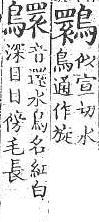 似宣切水
鳥通作旋
䴉
音睘水鳥名紅白
深目目傍毛長